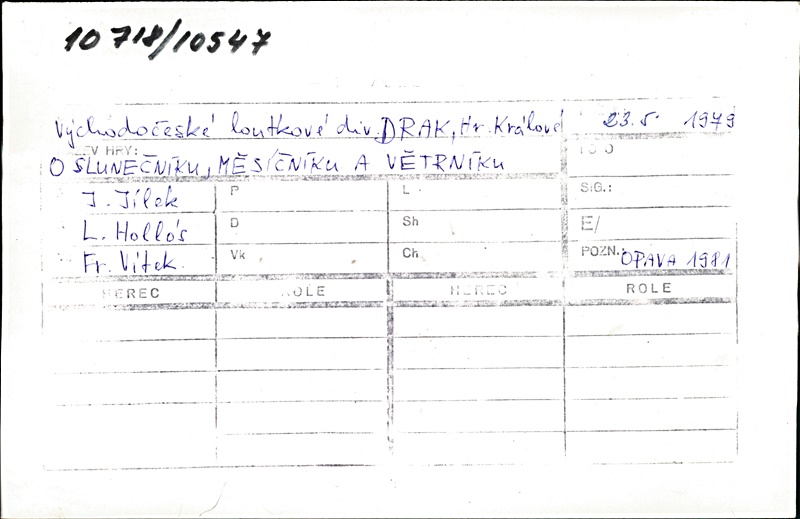 10 718/10547
Východočeské loutkové div. DRAK, Hr. Králové 23. 5. 1979
EV HRY:
O SLUNEČNÍKU, MĚSÍČNÍKU A VĚTRNÍKU
J. Jílek P L SIG.:
L. Hollós D Sh E/
Fr. Vítek Vk Ch POZN.: OPAVA 1981
HEREC ROLE HEREC ROLE